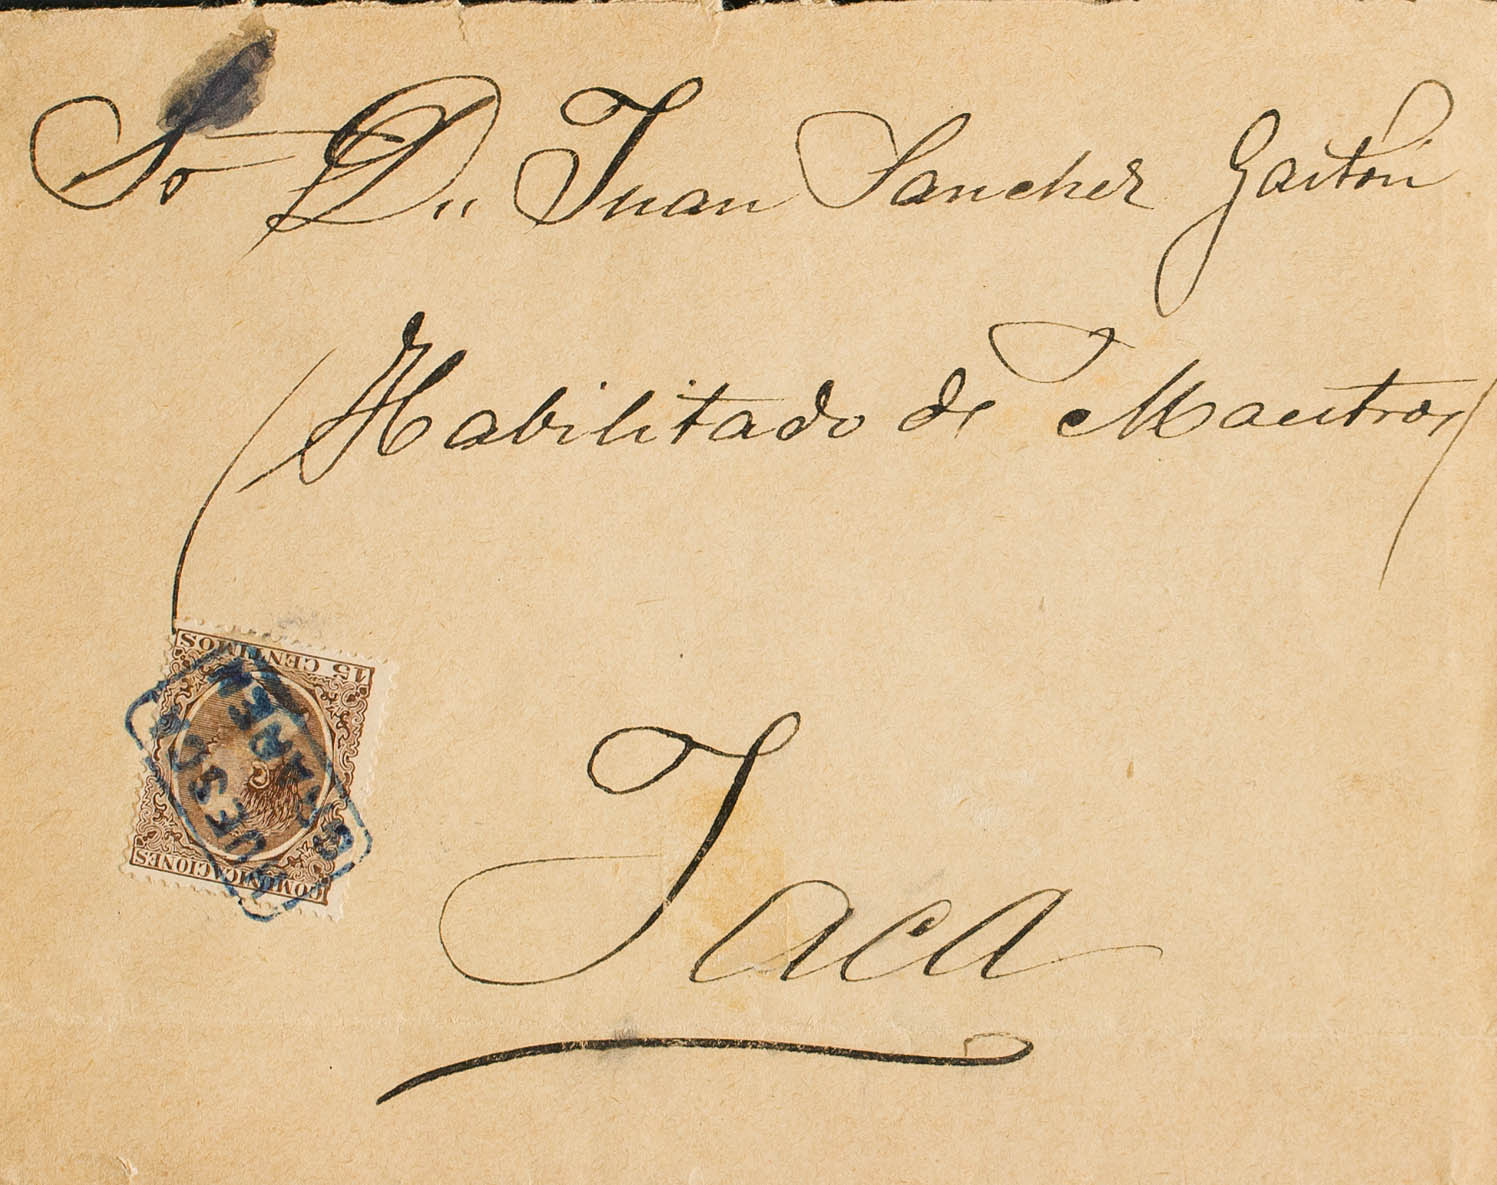 Sr D. Juan Sanchez Gastón
(Habilitado de Maestros)
15 CENTIMOS
COMUNICACIONES
Jaca